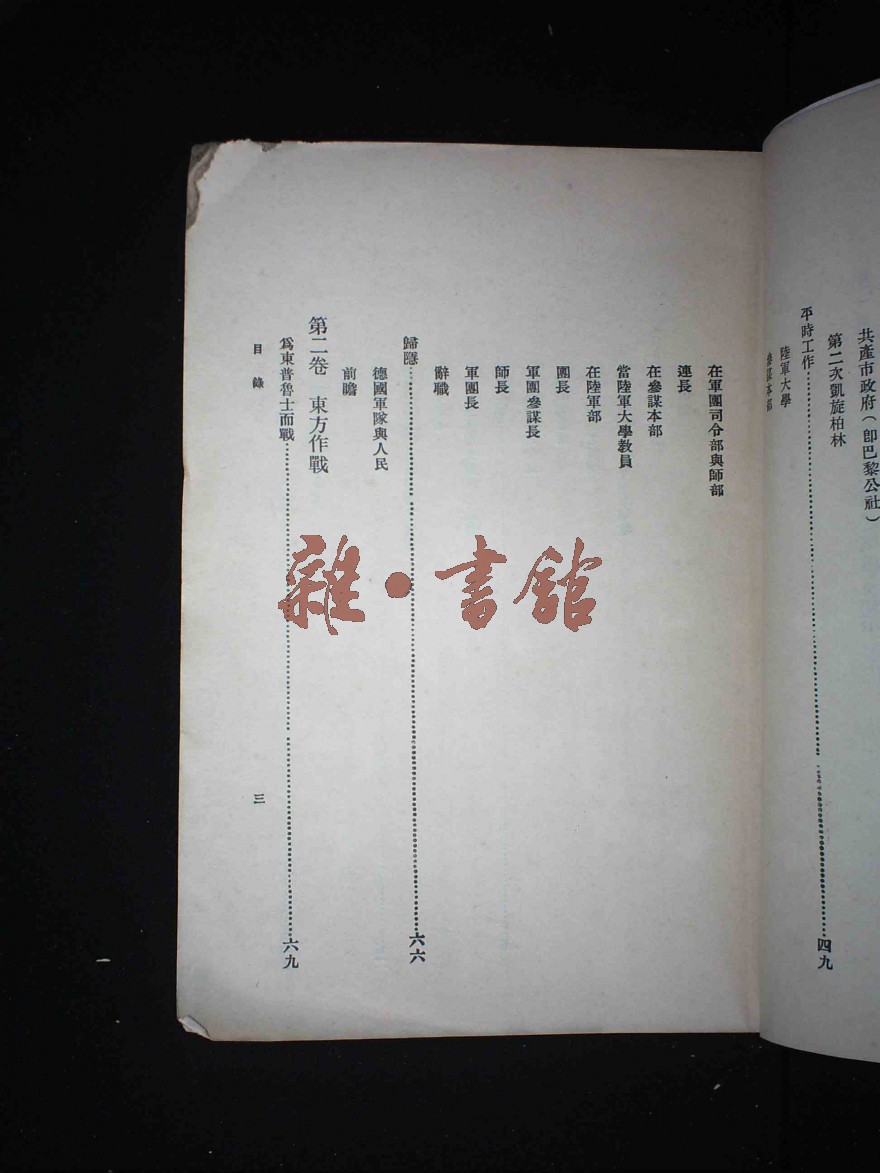 共產市政府（卽巴黎公社）
第二次凱旋柏林
平時工作……四九
陸軍大學
參謀本部
在軍團司令部與師部
連長
在參謀本部
當陸軍大學教員
在陸軍部
團長
軍團參謀長
師長
軍團長
辭職
歸隱……六六
德國軍隊與人民
前瞻
第二卷　東方作戰
爲東普魯士而戰……六九
目錄
三
雜·書館